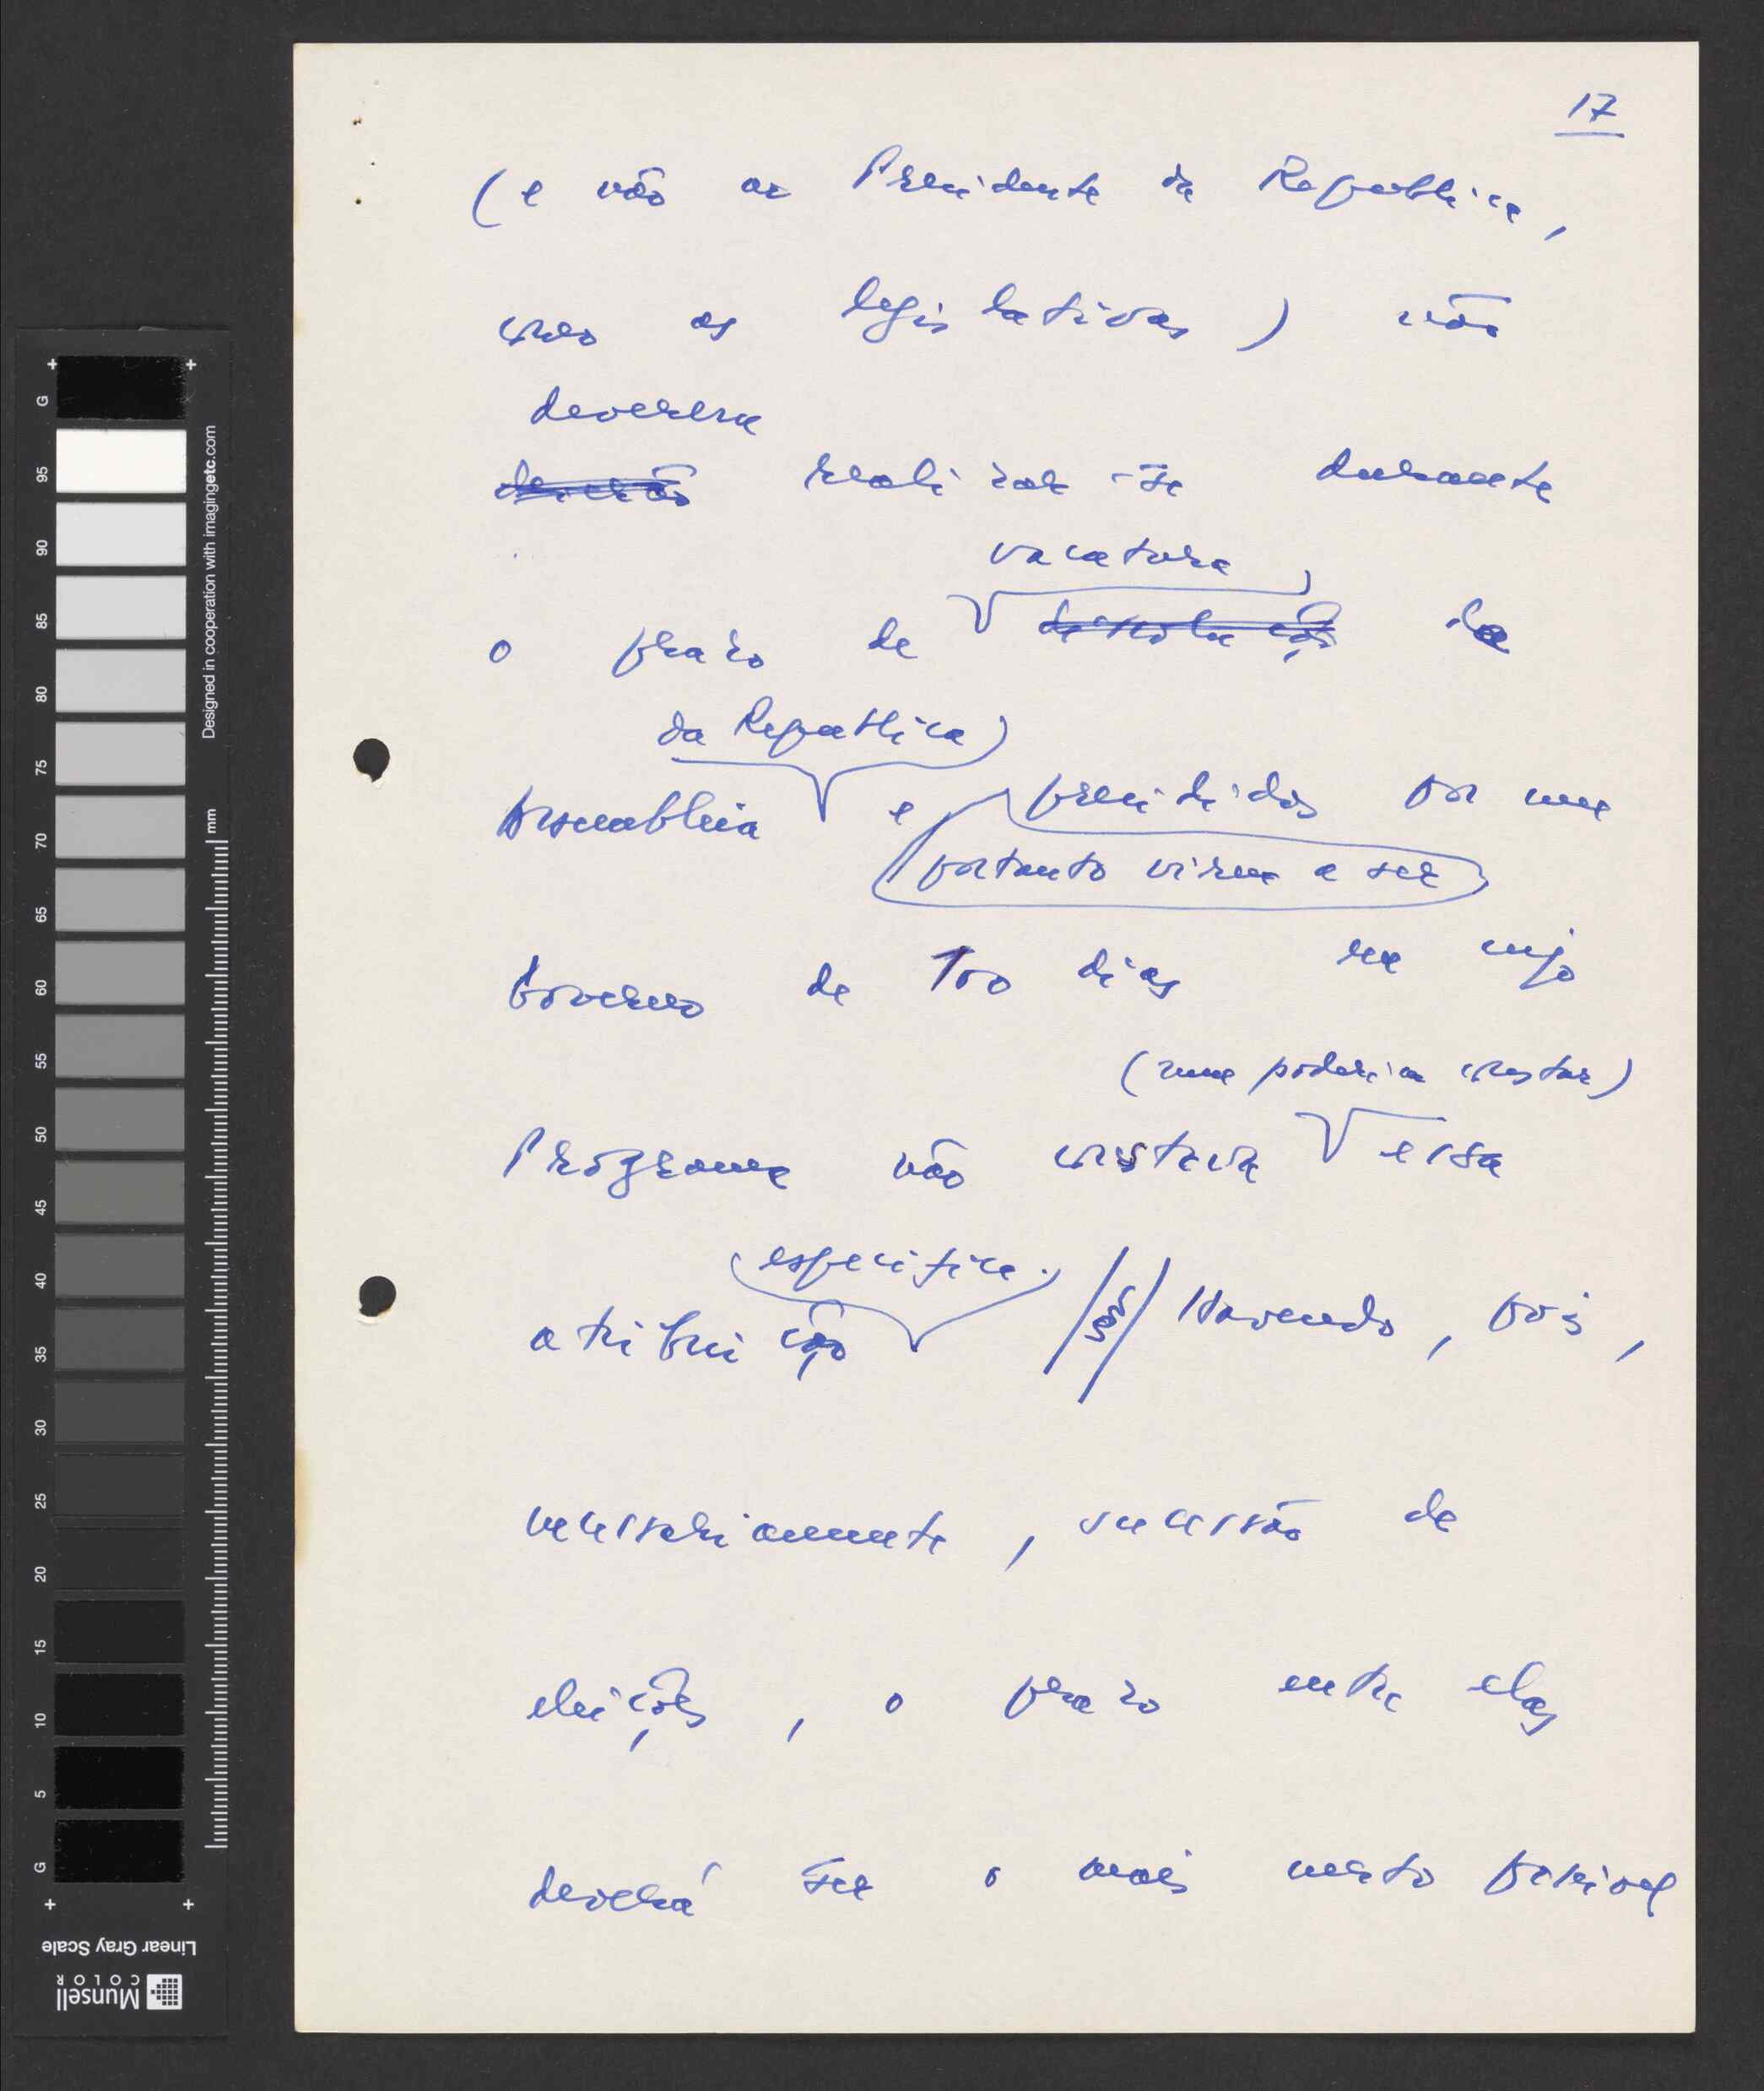 17
(e não ao Presidente da República,
como as legislativas) não
deverem
realizar-se durante
vacatura
o prazo de dissolução da
da República
Assembleia e presididas por um
portanto virem a ser
Governo de 100 dias em cujo
(nem poderia constar)
Programa não constava essa
específica.
atribuição // § // Havendo, pois,
necessariamente, sucessão de
eleições, o prazo entre elas
deverá ser o mais curto possível
G
95
90
85
80
75
70
65
60
55
50
45
40
35
30
25
20
15
10
5
G
mm
Designed in cooperation with imagingetc.com
Linear Gray Scale
Munsell
COLOR